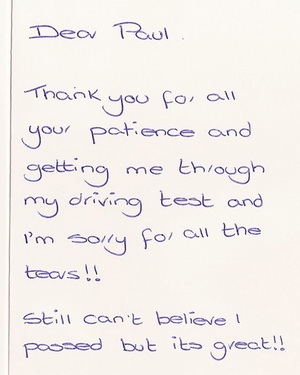 Dear Paul.
Thank you for all
your patience and
getting me through
my driving test and
I'm sorry for all the
tears!!
Still can't believe I
passed but its great!!